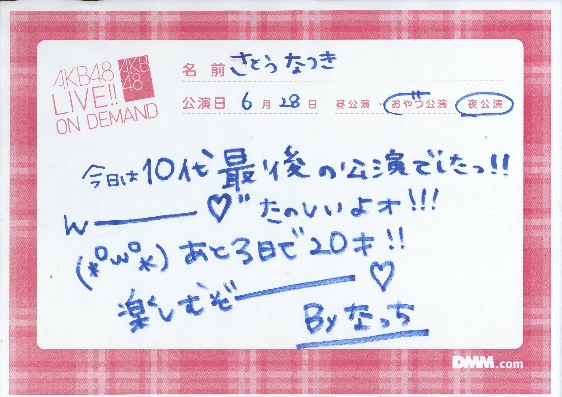 AKB48
LIVE!!
ON DEMAND
AKB
48
名 前 さとう なつき
公演日 6 月 28 日 昼公演 ・ おやつ公演 夜公演
今日は10代最後の公演でしたっ!!
w――♡" たのしいよォ!!!
(*°w°*) あと3日で20才!!
楽しむぞ――♡
By なっち
DMM.com